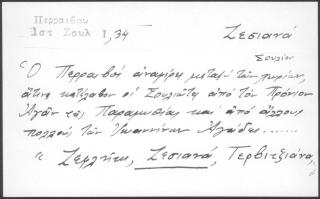 Περραιβου
Ιστ Σουλ Ι, 34
Ζεσιανά
Σουλίου
Ὁ Περραιβός ἀναφέρει μεταξύ τῶν χωρίων,
ἅτινα κατέλαβον οἱ Σουλιῶται ἀπό τόν Πρόνιον
Ἀγᾶν τῆς Παραμυθίας καί ἀπό ἄλλους
πολλούς τῶν Ἰωαννίνων Ἀγάδες......
Ζεσιανά, Τερβιτζιάνα,